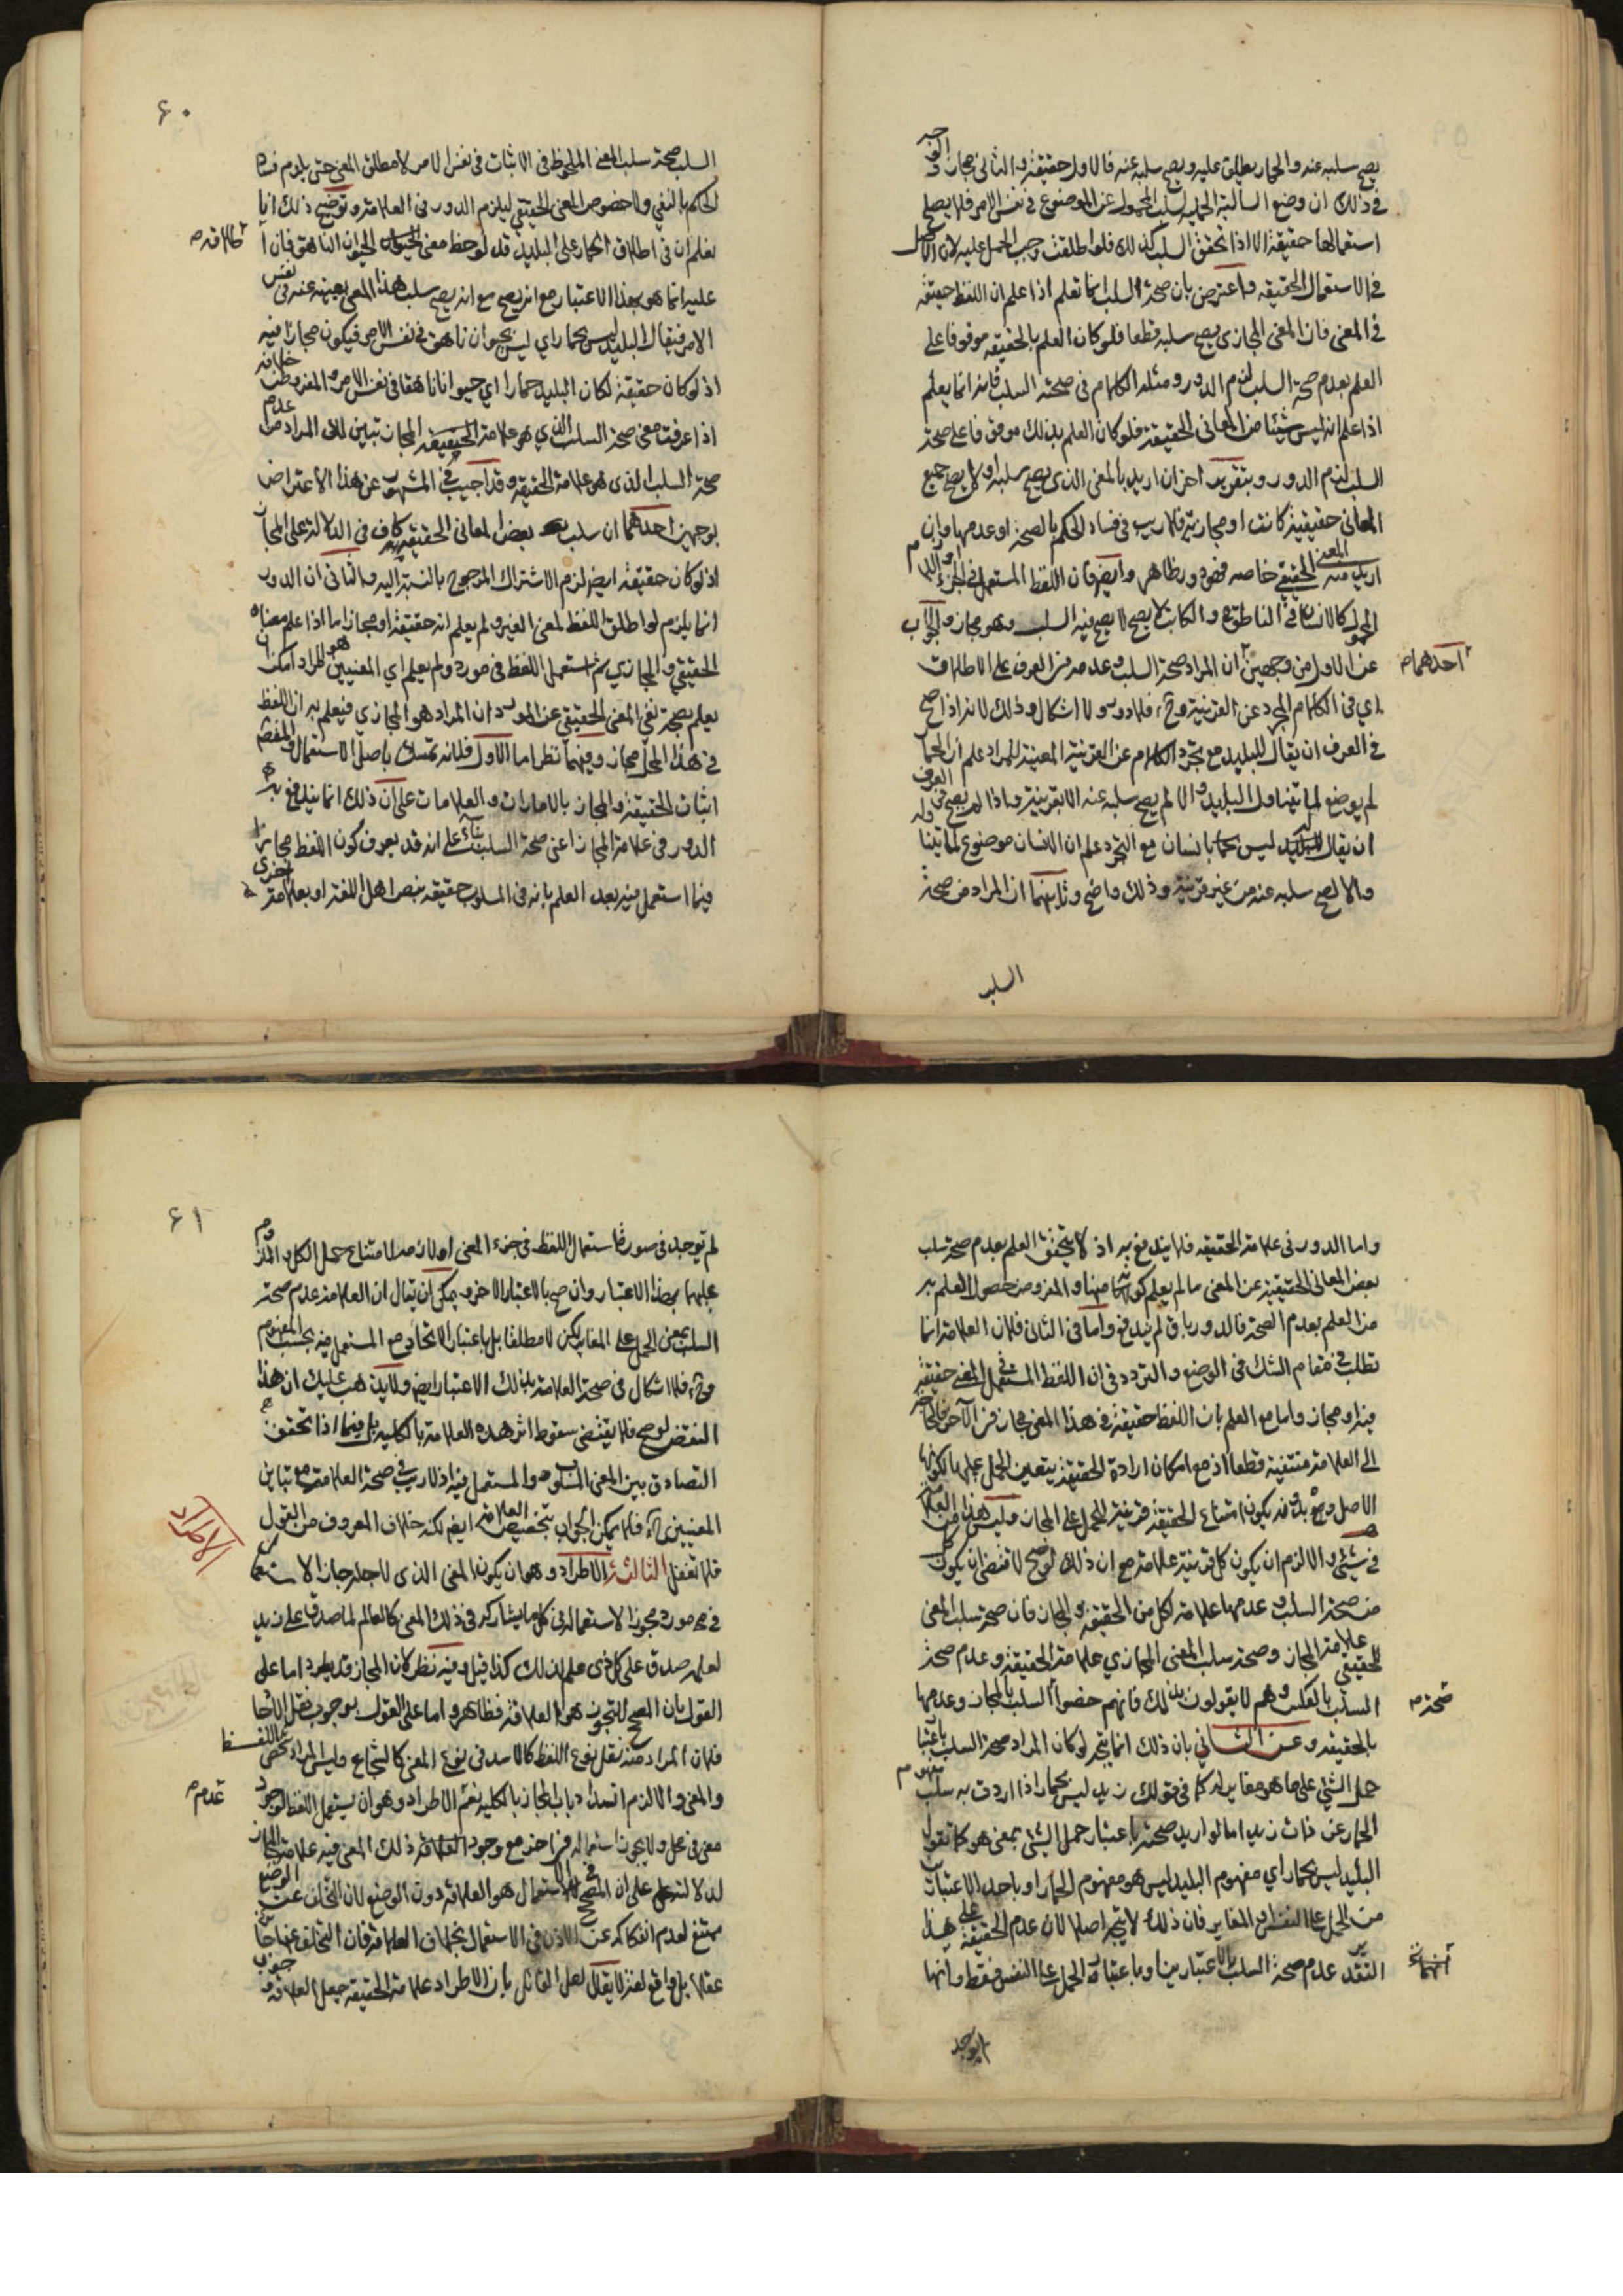 يصح سلبه عنه والحمار يطلق عليه ويصح سلبه عنه فالاول حقيقة والثاني مجاز والوجه
في ذلك ان وضع السالبة الحملية لسلب المحمول عن الموضوع في نفس الامر فلا يصلح
استعمالها حقيقة الا اذا تحقق السلب كذلك فلو اطلقت وجب الحمل عليه لان الاصل
في الاستعمال الحقيقه واعترض بان صحة السلب انما تعلم اذا علم ان اللفظ حقيقة
في المعنى فان المعنى المجازي يصح سلبه قطعا فلو كان العلم بالحقيقه موقوفا على
العلم بعدم صحة السلب لزم الدور ومثله الكلام في صحة السلب فانه انما يعلم
اذا علم انه ليس شيئا من المعاني الحقيقة فلو كان العلم بذلك موقوفا على صحة
السلب لزم الدور وبتقرير اخر ان اريد بالمعنى الذي يصح سلبه او لا يصح جميع
المعاني حقيقية كانت او مجازية فلا ريب في فساد الحكم بالصحة او عدمها وان
اريد منه المعنى الحقيقي خاصه فهو دور ظاهر وايضا فان اللفظ المستعمل في الجزء او اللازم
المحمول كالانسان في الناطق والكاتب لا يصح فيه السلب وهو مجاز والجواب
عن الاول من وجهين احدهما ان المراد صحة السلب وعدمه في العرف على الاطلاق
اي في الكلام المجرد عن القرينة وح فلا دور ولا اشكال وذلك لانه اذا صح
في العرف ان يقال للبليد مع تجرد الكلام عن القرينة المعينة للمراد علم ان الحمار
لم يوضع لما يتناول البليد والا لم يصح سلبه عنه الا بقرينة واذا لم يصح في العرف
ان يقال للبليد ليس بانسان مع التجرد علم ان الانسان موضوع لما يتناوله
والا لصح سلبه عنه من غير قرينة وذلك واضح وثانيهما ان المراد من صحة
السلب
٦٠
السلب صحة سلب المعنى الملحوظ في الاثبات في نفس الامر لا مطلق المعنى حتى يلزم فساد
الحكم بالنفي ولا خصوص المعنى الحقيقي ليلزم الدور في العلامة وتوضيح ذلك انا
نعلم ان في اطلاق الحمار على البليد قد لوحظ معنى الحيوان الناهق فان اطلاقه
عليه انما هو بهذا الاعتبار مع انه يصح سلب هذا المعنى بعينه عنه في نفس
الامر فيقال البليد ليس بحمار اي ليس بحيوان ناهق في نفس الامر فيكون مجازا فيه
اذ لو كان حقيقة لكان البليد حمارا اي حيوانا ناهقا في نفس الامر والمفروض خلافه
اذا عرفت معنى صحة السلب الذي هو علامة المجاز تبين لك المراد من عدم
صحة السلب الذي هو علامة الحقيقه وقد اجيب في المشهور عن هذا الاعتراض
بوجهين احدهما ان سلب بعض المعاني الحقيقيه كاف في الدلالة على المجاز
اذ لو كان حقيقة ايضا لزم الاشتراك المرجوح بالنسبة اليه والثاني ان الدور
انما يلزم لو اطلق اللفظ لمعنى الغير ولم يعلم انه حقيقة او مجاز اما اذا علم معناه
الحقيقي والمجازي ثم استعمل اللفظ في مورد ولم يعلم اي المعنيين هو المراد امكن ان
يعلم بصحة نفي المعنى الحقيقي عن المورد ان المراد هو المجازي فيعلم به ان اللفظ
في هذا المحل مجاز وفيهما نظر اما الاول فلانه تمسك باصل الاستعمال والمقصود
اثبات الحقيقة والمجاز بالامارات والعلامات على ان ذلك انما يندفع به
الدور في علامة المجاز اعني صحة السلب بناء على انه قد يعرف كون اللفظ مجازا
فيما استعمل فيه بعد العلم بانه في المسلوب حقيقه بنص اهل اللغة او بعلامة اخرى
واما الدور في علامة الحقيقه فلا يندفع به اذ لا يتحقق العلم بعدم صحة سلب
بعض المعاني الحقيقية عن المعنى ما لم يعلم كونه منها والمفروض حصول العلم به
من العلم بعدم الصحة فالدور باق لم يندفع واما في الثاني فلان العلامة انما
تطلب في مقام الشك في الوضع والتردد في ان اللفظ المستعمل في المعنى حقيقة
فيه او مجاز واما مع العلم بان اللفظ حقيقة في هذا المعنى مجاز في الآخر فالحاجة
الى العلامة منتفية قطعا اذ مع امكان ارادة الحقيقة يتعين الحمل عليها لكونها
الاصل وبدونه يكون امتناع الحقيقة قرينة الحمل على المجاز وليس هذا من العلامة
في شئ والا لزم ان يكون كل قرينة علامة مع ان ذلك لو صح لاقتضى ان يكون كل
من صحة السلب وعدمها علامة لكل من الحقيقة والمجاز فان صحة سلب المعنى
الحقيقي علامة المجاز وصحة سلب المعنى المجازي علامة الحقيقة وعدم صحة
السلب بالعكس وهم لا يقولون بذلك فانهم خصوا صحة السلب بالمجاز وعدمها
بالحقيقه وعن الثاني بان ذلك انما يتجه لو كان المراد صحة السلب باعتبار
حمل الشئ على ما هو مغاير له كما في قولك زيد ليس بحمار اذا اردت به سلب مفهوم
الحمار عن ذات زيد اما لو اريد صحته باعتبار حمل الشئ بمعنى هو كما تقول
البليد ليس بحمار اي مفهوم البليد ليس هو مفهوم الحمار او باحد الاعتبارين
من الحمل على النفس او المغاير فان ذلك لا يتجه اصلا لان عدم الحقيقة على هذا
التقدير عدم صحة السلب بالاعتبارين او باعتبار الحمل على النفس فقط وانهما
لم يوجد
٦١
لم توجد في صورة استعمال اللفظ في جزء المعنى او لازمه لامتناع حمل الكل والملزوم
عليهما بهذا الاعتبار وان صح بالاعتبار الاخر ويمكن ان يقال ان العلامة عدم صحة
السلب بمعنى الحمل على المغاير لكن لا مطلقا بل باعتبار الاتحاد مع المستعمل فيه بحسب المفهوم
وح فلا اشكال في صحة العلامة بذلك الاعتبار ايضا ولا يذهب عليك ان هذا
النقض لو صح فلا يقتضي سقوط اثر هذه العلامة بالكليه بل فيما اذا تحقق
التصادق بين المعنى المسلوب والمستعمل فيه اذ لا ريب في صحة العلامة مع تباين
المعنيين فلا يمكن الجواب بتخصيص العلامة ايضا لكنه خلاف المعروف من القول
فلا تغفل الثالثة الاطراد وهو ان يكون المعنى الذي لاجله جاز الاستعمال
الاطراد
في مورد مجوزا لاستعماله في كل ما يشاركه في ذلك المعنى كالعالم لما صدق على زيد
لعلمه صدق على كل ذي علم لذلك كذا قيل وفيه نظر لان المجاز قد يطرد اما على
القول بان المصحح للتجوز هو العلاقة فظاهر واما على القول بوجوب نقل الاحاد
فلان المراد منه نقل نوع اللفظ كالاسد في نوع المعنى كالشجاع وليس المراد شخص اللفظ
والمعنى والا لزم انسداد باب المجاز بالكليه نعم عدم الاطراد وهو ان يستعمل اللفظ لوجود
معنى في محل ولا يجوز استعماله في اخر مع وجود ذلك المعنى فيه علامة المجاز
لدلالته على ان المصحح للاستعمال هو العلاقة دون الوضع لان التخلف عن الوضع
ممتنع لعدم انفكاكه عن الاذن في الاستعمال بخلاف العلاقة فان التخلف عنها جائز
عقلا بل واقع لغة لا يقال لعل القائل بان الاطراد علامة الحقيقة جعل العلاقة